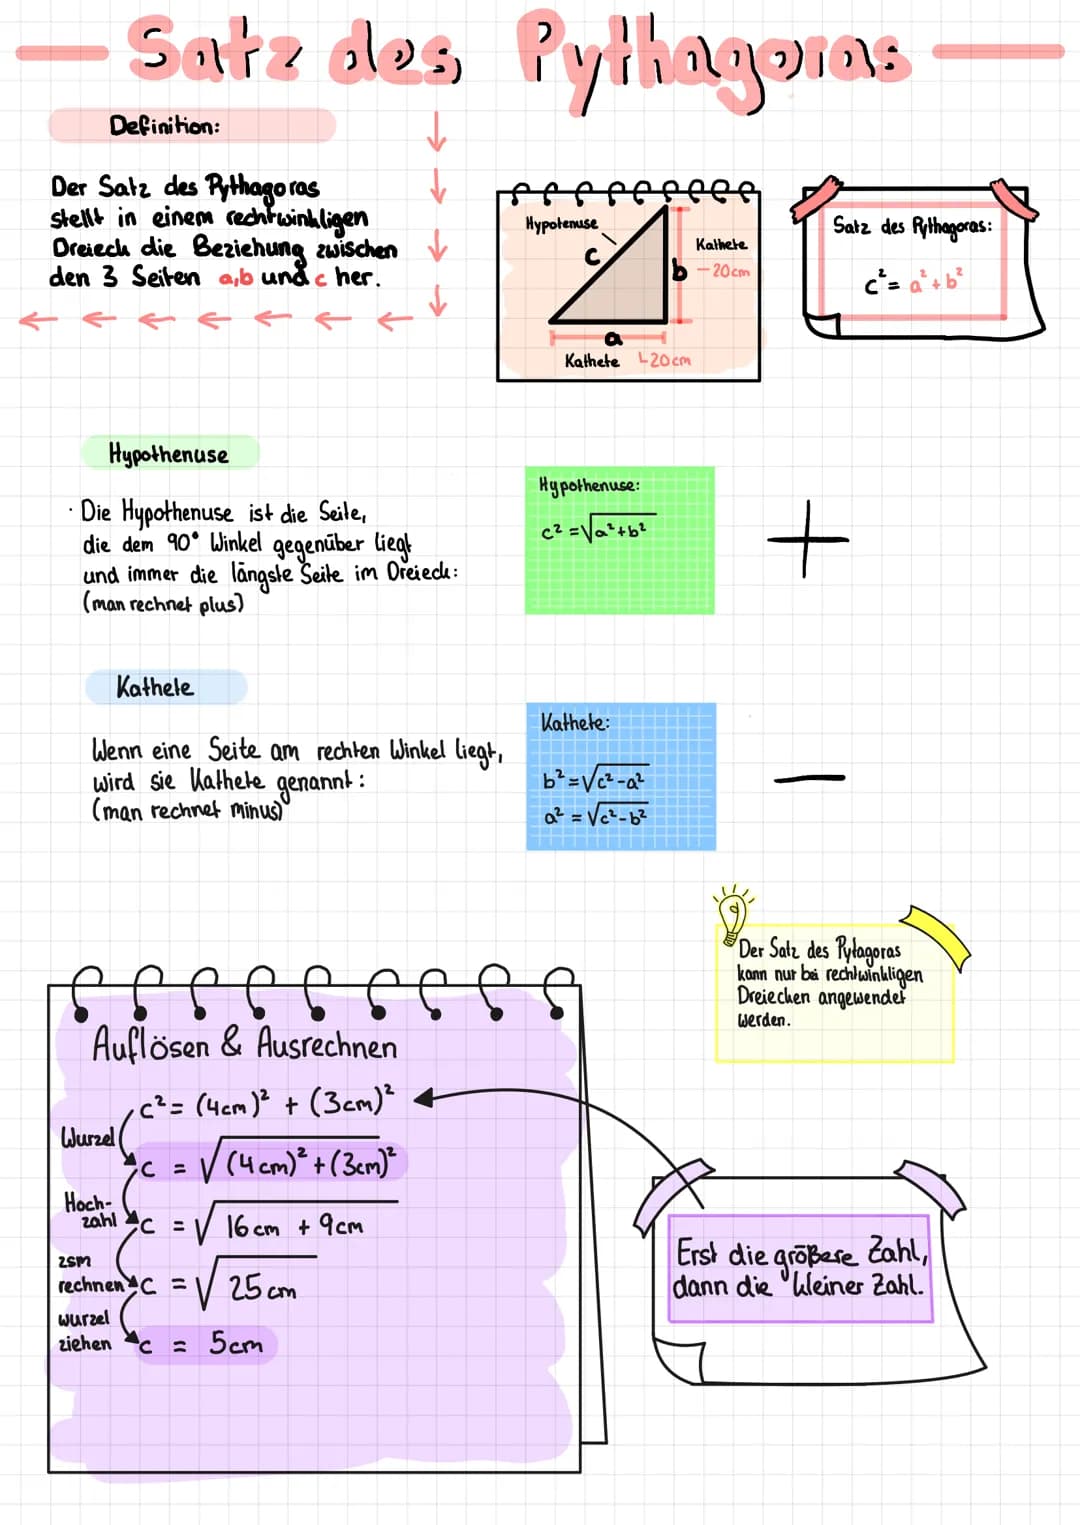 Satz des Pythagoras
Definition:
Der Satz des Pythagoras
stellt in einem rechtwinkligen
Dreieck die Beziehung zwischen
den 3 Seiten a,b und c her.
Hypotenuse
c
Kathete
b - 20cm
a
Kathete 20cm
Satz des Pythagoras:
c² = a² + b²
Hypothenuse
· Die Hypothenuse ist die Seite,
die dem 90° Winkel gegenüber liegt
und immer die längste Seite im Dreieck:
(man rechnet plus)
Hypothenuse:
c² = √a²+b²
+
Kathete
Wenn eine Seite am rechten Winkel liegt,
wird sie Kathete genannt:
(man rechnet minus)
Kathete:
b² = √c²-a²
a² = √c²-b²
−
Der Satz des Pytagoras
kann nur bei rechtwinkligen
Dreiecken angewendet
werden.
Auflösen & Ausrechnen
c² = (4cm)² + (3cm)²
Wurzel
c = √(4cm)² + (3cm)²
Hoch-
zahl
c = √16cm + 9cm
zsm
rechnen
c = √25cm
wurzel
ziehen
c = 5cm
Erst die größere Zahl,
dann die kleiner Zahl.